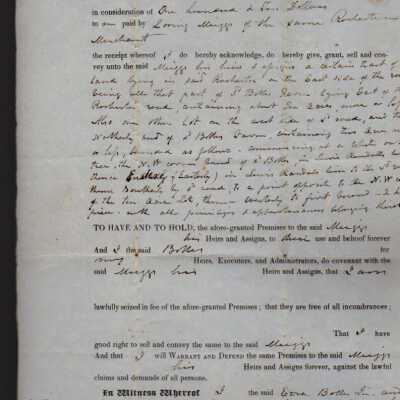 in consideration of One hundred & Ten Dollars
in me paid by Loring Meiggs of the same Rochester
Merchant
the receipt whereof I do hereby acknowledge, do hereby give, grant, sell and con-
vey unto the said Meiggs his heirs & assigns a certain tract of
Land lying in said Rochester on the East side of the
being all that part of S. Bolles Farm lying East of
Rochester road containing about Ten Acres more or
Also one other Lot on the west side of S road, and the
end of S Bolles Farm, containing Two Acres
or less, bounded as follows, commencing at a stake
the N.W. corner bound of S Bolles, in Lewis Randals
thence Easterly in Lewis Randals line to the
thence Southerly by S road, to a point opposite to the
of the Ten Acre Lot, thence westerly to first bound
with all privileges & appurtenances belonging
TO HAVE AND TO HOLD, the afore-granted Premises to the said Meiggs
his Heirs and Assigns, to their use and behoof forever
And I the said Bolles for
my Heirs, Executors, and Administrators, do covenant with the
said Meiggs his Heirs and Assigns, that I am
lawfully seized in fee of the afore-granted Premises; that they are free of all incumbrances;
That I have
good right to sell and convey the same to the said Meiggs
And that I will WARRANT AND DEFEND the same Premises to the said Meiggs
his Heirs and Assigns forever, against the lawful
claims and demands of all persons.
In Witness Whereof I the said Bolles and